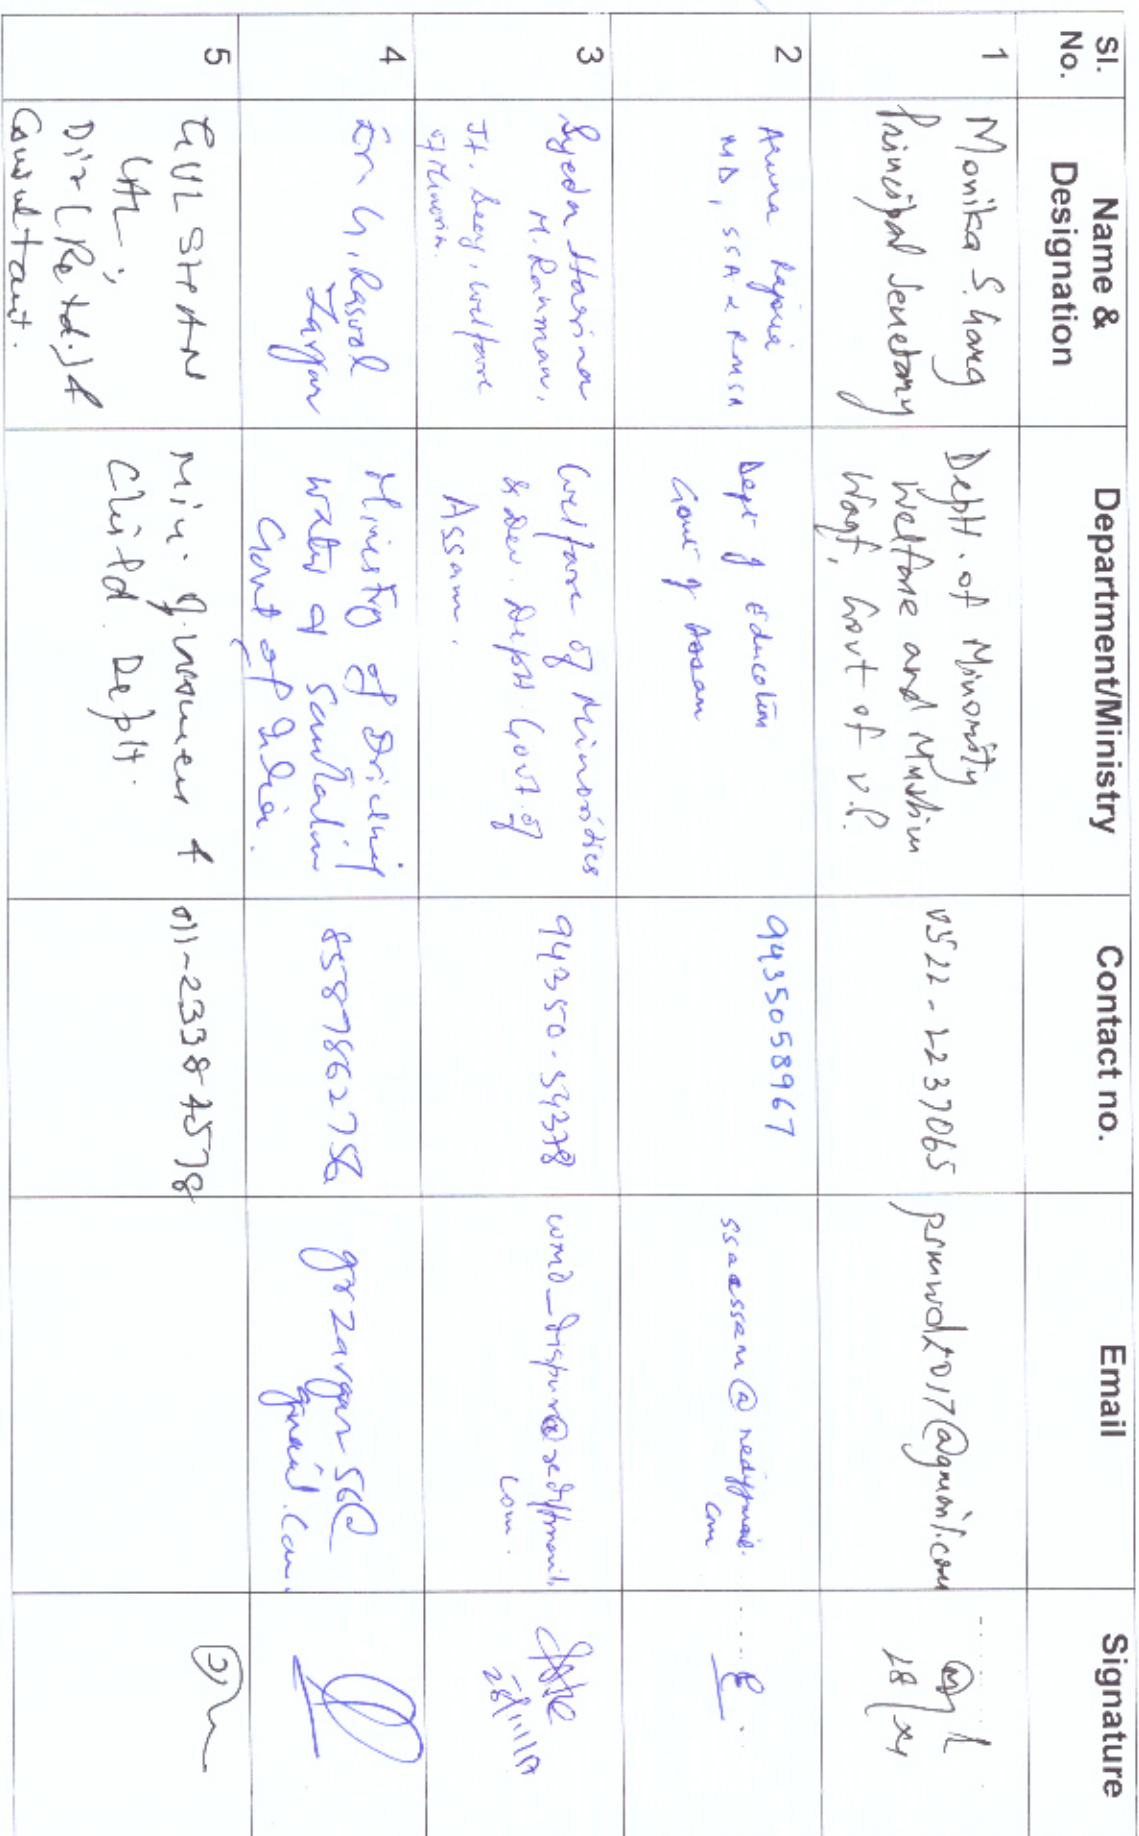 Sl. No.
Name & Designation
Department/Ministry
Contact no.
Email
Signature
1
Monika S. Garg
Principal Secretary
Deptt. of Minority
Welfare and Muslim
Waqf, Govt of U.P.
0522-2237065
psmwd2017@gmail.com
2
Aruna Rajoria
MD, SSA & RMSA
Dept of Education
Govt of Assam
9435058967
ssaassam@rediffmail.
com
3
Syeda Hasina
M. Rahman,
Jt. Secy, Welfare
of Minorin.
Welfare of Minorities
& Dev. Deptt Govt. of
Assam.
94350-54378
wmd_dispur@rediffmail.
com.
28/11/17
4
Er. G. Rasool
Zargar
Ministry of Drinking
Water & Sanitation
Govt of India.
8587862756
grzargar56@
gmail.com.
5
GULSHAN
LAL,
Dir (Retd.) &
Consultant.
Min. of women &
Child Deptt.
011-23384578